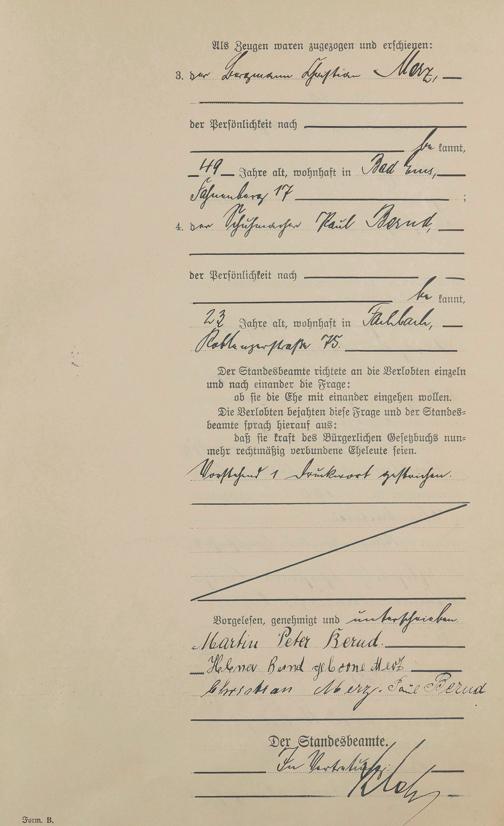 Als Zeugen waren zugezogen und erschienen:
3. der Bergmann Christian Merz,
der Persönlichkeit nach
be kannt,
49 Jahre alt, wohnhaft in Bad Ems,
17 ;
4. der Schuhmacher Paul Bernd,
der Persönlichkeit nach
be kannt,
23 Jahre alt, wohnhaft in Fachbach,
Koblenzerstraße 75.
Der Standesbeamte richtete an die Verlobten einzeln
und nach einander die Frage:
ob sie die Ehe mit einander eingehen wollen.
Die Verlobten bejahten diese Frage und der Standes-
beamte sprach hierauf aus:
daß sie kraft des Bürgerlichen Gesetzbuchs nun-
mehr rechtmäßig verbundene Eheleute seien.
Vorstehend 1 Druckwort gestrichen.
Vorgelesen, genehmigt und unterschrieben
Martin Peter Bernd.
Helena Bernd geborne Merz
Christian Merz. Paul Bernd
Der Standesbeamte.
In Vertretung:
Form. B.